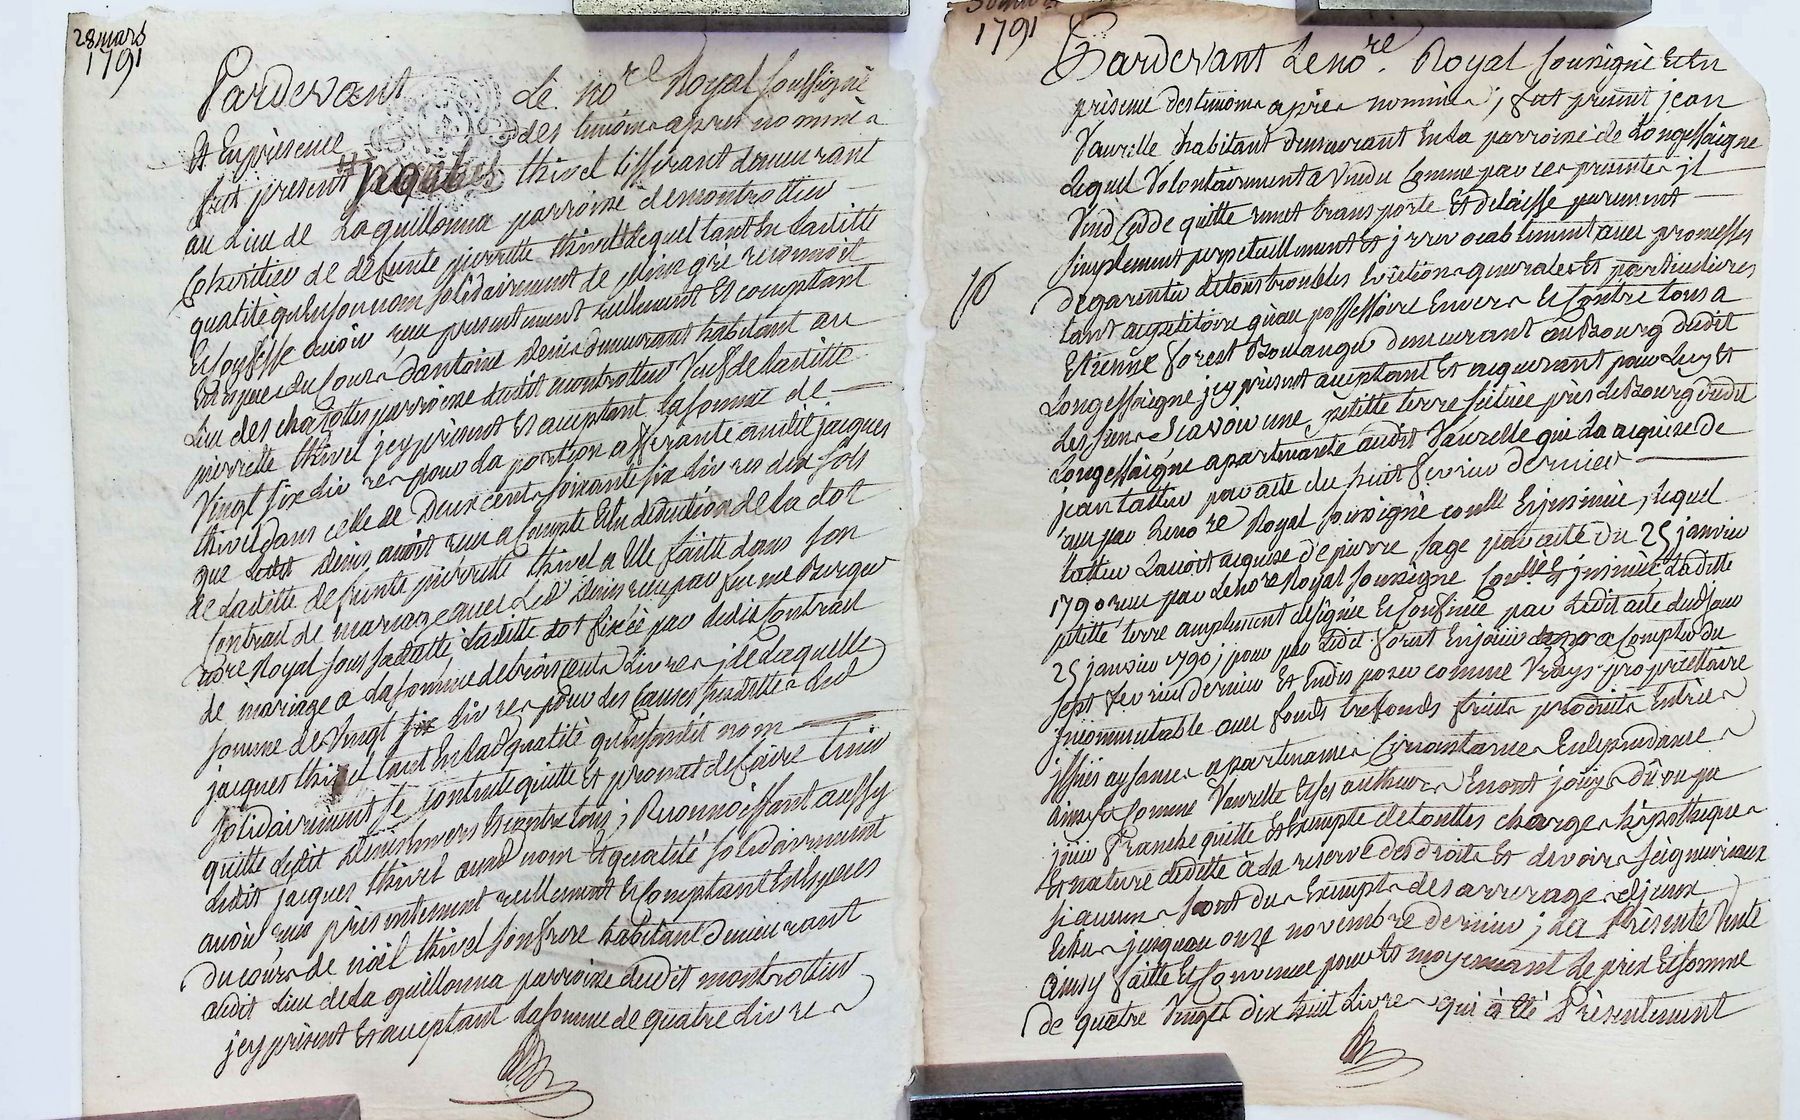 28 mars
1791
Pardevant Le no.re Royal soussigné
Et En présence des temoins apres nommés
fut present jacques thivel tisserant demeurant
au Lieu de La guillonna parroisse de montrottier
Coheritier de defunte pierrette thivel Lequel tant En Laditte
qualité qu'En son nom solidairement de plein gré reconnoit
Et Confesse avoir reçu presentement reellement Et comptant
En Espèces du Cours d'antoine Denis demeurant habitant au
Lieu des parroisse dudit montrottier Veuf de Laditte
pierrette thivel jcy présent Et acceptant La somme de
Vingt six Livres pour La portion afferante audit jacques
thivel dans celle de Deux cents soixante six Livres dix sols
que Ledit Denis avoit reçu a Compte Et En deduction de La dot
de Laditte defunte pierrette thivel a Elle faitte dans son
Contract de mariage avec Led. Denis reçu par feu me
no.re Royal sous sa datte Laditte dot fixée par Ledit Contract
de mariage a La somme de trois cents Livres ; de Laquelle
somme de Vingt six Livres pour Les Causes susdittes Led.
jacques thivel tant En Lad. qualité qu'En sondit nom
solidairement se contente quitte Et promet de faire tenir
quitte Ledit Denis Envers Et contre tous ; Reconnoissant aussy
Ledit jacques thivel auxd. nom Et qualité solidairement
avoir reçu présentement reellement Et Comptant En Espèces
du cours de noël thivel son frere habitant demeurant
audit Lieu de La guillonna parroisse dudit montrottier
jcy présent Et acceptant La somme de quatre Livres
1791
Pardevant Le no.re Royal soussigné Et En
présence des temoins après nommés ; fut présent jean
Vaurelle habitant demeurant En La parroisse de Longessaigne
Lequel Volontairement a Vendu Comme par ces présentes jl
Vend Cede quitte remet transporte Et delaisse purement
simplement perpetuellement Et jrrevocablement avec promesses
de garentir de tous troubles Evictions generales Et particulieres
tant au petitoire qu'au possessoire Envers Et Contre tous a
Etienne forest Boulanger demeurant au Bourg dudit
Longessaigne jcy présent acceptant Et acquerant pour Luy Et
Les siens Scavoir une petitte terre scituée près Le Bourg dudit
Longessaigne apartenante audit Vaurelle qui La acquise de
jean tattier par acte du huit fevrier dernier
reçu par Le no.re Royal soussigné controllé Et jnsinué, Lequel
tattier L'avoit acquise de pierre sage par acte du 25 janvier
1790 reçu par Le no.re Royal soussigné Controllé Et jnsinué Laditte
petitte terre amplement désignée Et Confinée par Ledit acte dudjour
25 janvier 1790 ; pour par Ledit forest En jouir a Compter du
sept fevrier dernier Et En disposer comme Vrays proprietaire
jncommutable avec fonds trefonds fruits produits Entrées
jssues aysances apartenances Circonstances En dependances
ainsy & Comme Vaurelle Et ses autheurs En ont jouy Dû ou pu
jouir Franche quitte Et Exempte de touttes charges hipotheques
Et nature de dette à La reserve des droits Et devoirs seigneuriaux
si aucuns sont dus Exempts des arrerages d'jceux
Echus jusqu'au onze novembre dernier ; La Présente Vente
ainsy faitte Et Convenue pour Et moyennant Le prix Et somme
de quatre Vingt dix huit Livres qui à été Présentement